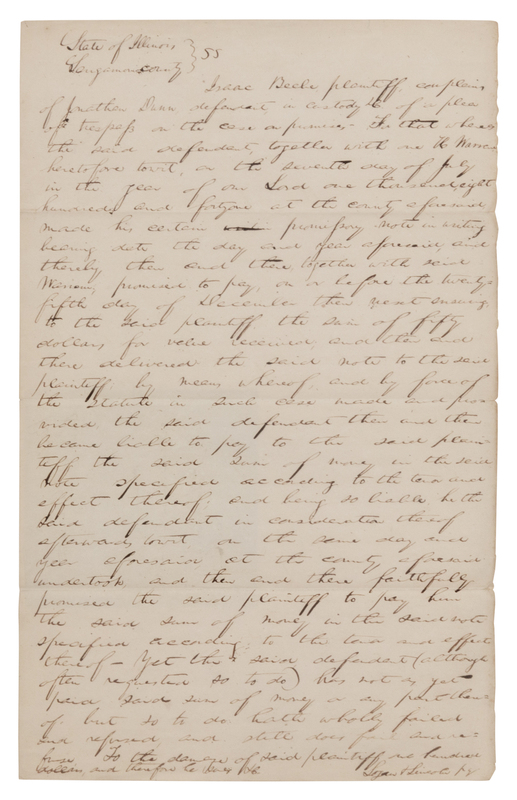 State of Illinois } SS
Sangamon county }
Isaac Beele plaintiff, complains
of Jonathan Dunn defendant in custody &c of a plea
of trespass on the case on promises. For that whereas
the said defendent, together with one
heretofore towit, on the seventh day of July
in the year of our Lord one thousand eight
hundred and fortyone at the county aforesaid
made his certain promissory note in writing
bearing date the day and year aforesaid, and
thereby then and there, together with said
promised to pay, on or before the twenty
fifth day of December then next ensuing,
to the said plaintiff the sum of fifty
dollars for value received, and then and
there delivered the said note to the said
plaintiff, by means whereof, and by force of
the Statute in such case made and pro-
vided the said defendant then and there
became liable to pay to the said plain-
tiff the said sum of money in the said
note specified according to the tenor and
effect thereof; and being so liable he the
said defendant in consideration thereof
afterwards, towit on the same day and
year aforesaid at the county aforesaid
undertook and then and there faithfully
promised the said plaintiff to pay him
the said sum of money in the said note
specified according to the tenor and effect
thereof - Yet the said defendant (although
often requested so to do) has not as yet
paid said sum of money or any part there-
of but so to do hath wholly failed
and refused and still does fail and re-
fuse To the damage of said plaintiff one hundred
dollars, and therefore he sues &c Logan & Lincoln p.q.